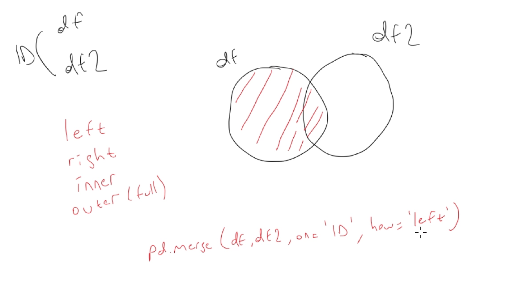 df
ID
df2
df
df2
left
right
inner
outer (full)
pd.merge (df, df2, on= 'ID', how= 'left')